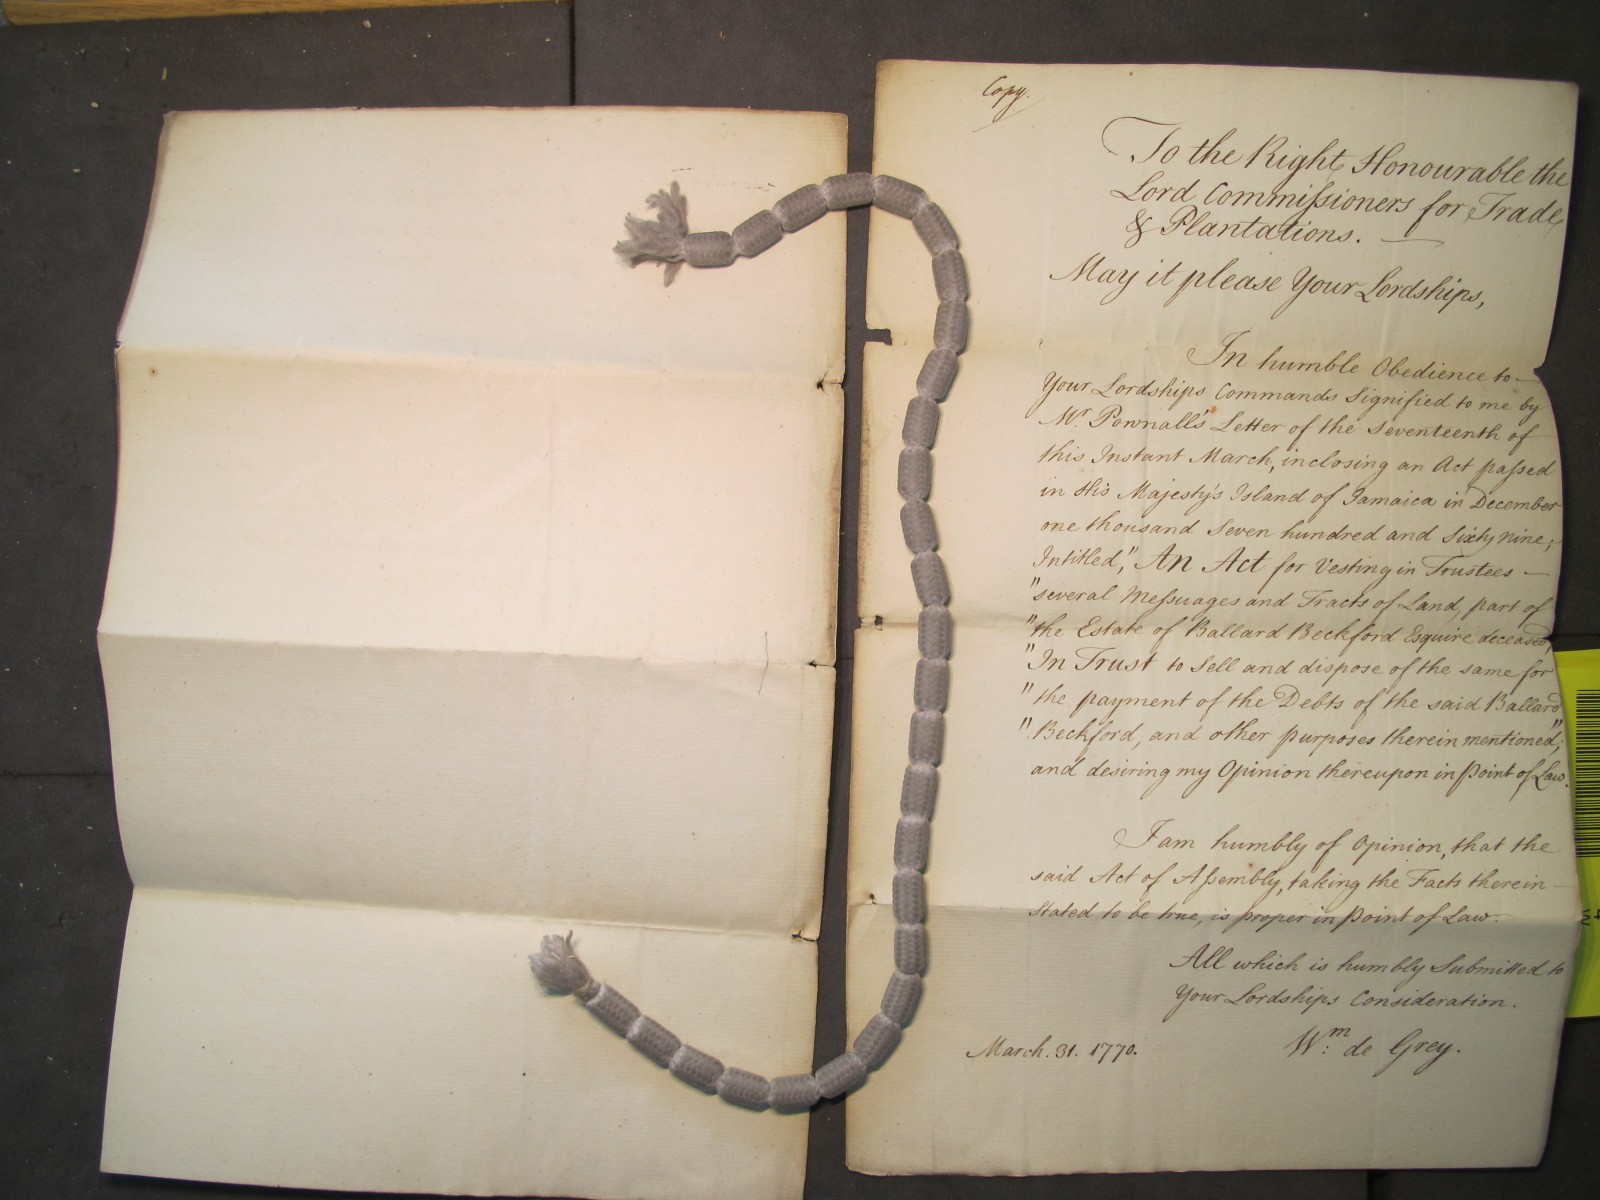 Copy.
To the Right Honourable the
Lord Commissioners for Trade
& Plantations.
May it please Your Lordships,
In humble Obedience to
Your Lordships Commands Signified to me by
Mr. Pownall's Letter of the Seventeenth of
this Instant March, inclosing an Act passed
in His Majesty's Island of Jamaica in December
one thousand Seven hundred and Sixty nine;
Intitled," An Act for Vesting in Trustees
"several Messuages and Tracts of Land, part of
"the Estate of Ballard Beckford Esquire deceased,
"In Trust to Sell and dispose of the same for
"the payment of the Debts of the said Ballard
"Beckford, and other purposes therein mentioned;"
and desiring my Opinion thereupon in Point of Law.
I am humbly of Opinion, that the
said Act of Assembly, taking the Facts therein
Stated to be true, is proper in Point of Law.
All which is humbly Submitted to
Your Lordships Consideration.
March. 31. 1770.
Wm: de Grey.